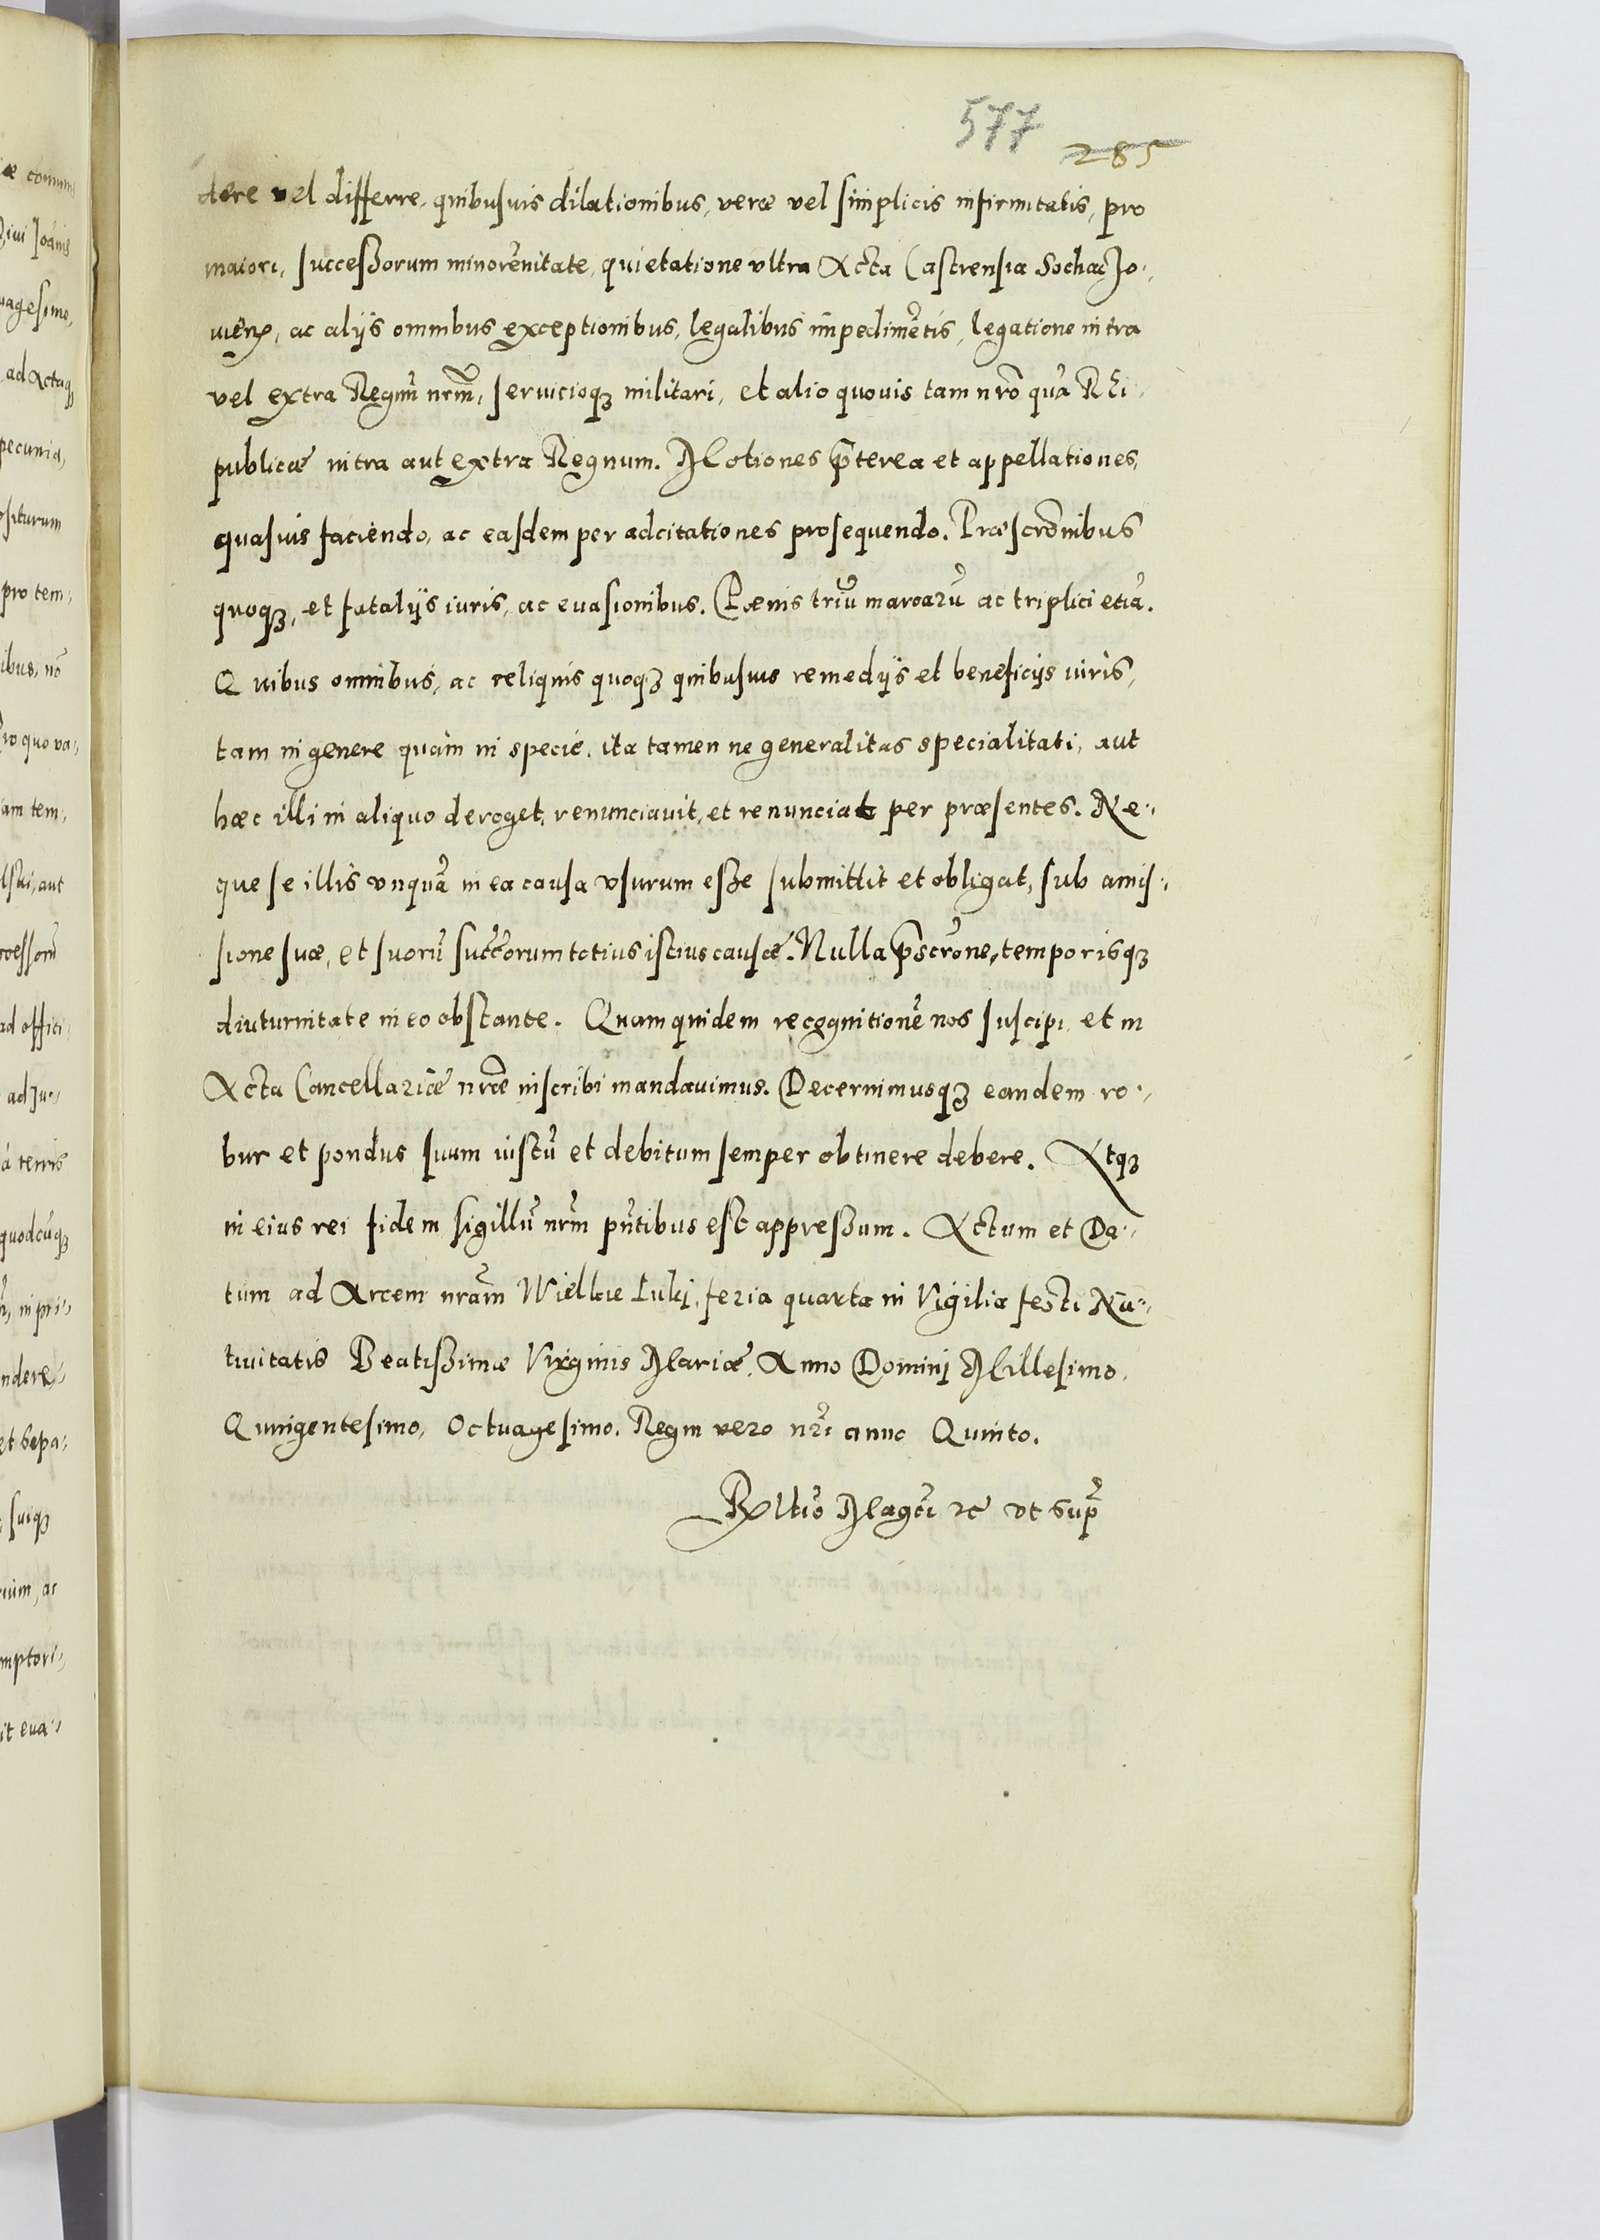 577
285
dere vel differre, quibusuis dilationibus, veræ vel simplicis infirmitatis, pro
maiori, successorum minorēnitate, quietatione vltra Acta Castrensia Sochaczo-,
uieñ, ac alijs omnibus exceptionibus, legalibus impedimētis, legatione intra
vel extra Regnū nrm̄, seruicioqꝫ militari, et alio quouis tam nrō quā Rei-
publicæ intra aut extra Regnum. Motiones p̄terea et appellationes,
quasuis faciendo, ac easdem per adcitationes prosequendo. Præscrōnibus
quoqꝫ, et fatalijs iuris, ac euasionibus. Pœnis triū marcarū ac triplici etiā.
Quibus omnibus, ac reliquis quoqꝫ quibusuis remedijs et beneficijs iuris,
tam in genere quàm in specie, ita tamen ne generalitas specialitati, aut
hæc illi in aliquo deroget, renunciauit, et renunciat per præsentes. Ne-,
que se illis vnquā in ea causa vsurum esse submittit et obligat, sub amis-,
sione suæ, et suorū succ̄orum totius istius causæ. Nulla p̄scrōne, temporisqꝫ
diuturnitate in eo obstante. Quam quidem recognitionē nos suscipi, et in
Acta Cancellariæ nrǣ inscribi mandauimus. Decernimusqꝫ eandem ro-,
bur et pondus suum iustū et debitum semper obtinere debere. Atqꝫ
in eius rei fidem sigillū nrm̄ pn̄tibus est appressum. Actum et Da-,
tum ad Arcem nrām Wielkie Luki, feria quarta in Vigilia festi Na-,
tiuitatis Beatissimæ Virginis Mariæ, Anno Domini Millesimo,
Quingentesimo, Octuagesimo. Regni vero nrī anno Quinto.
Rltīo Magcī ꝛc̄ vt sup̄